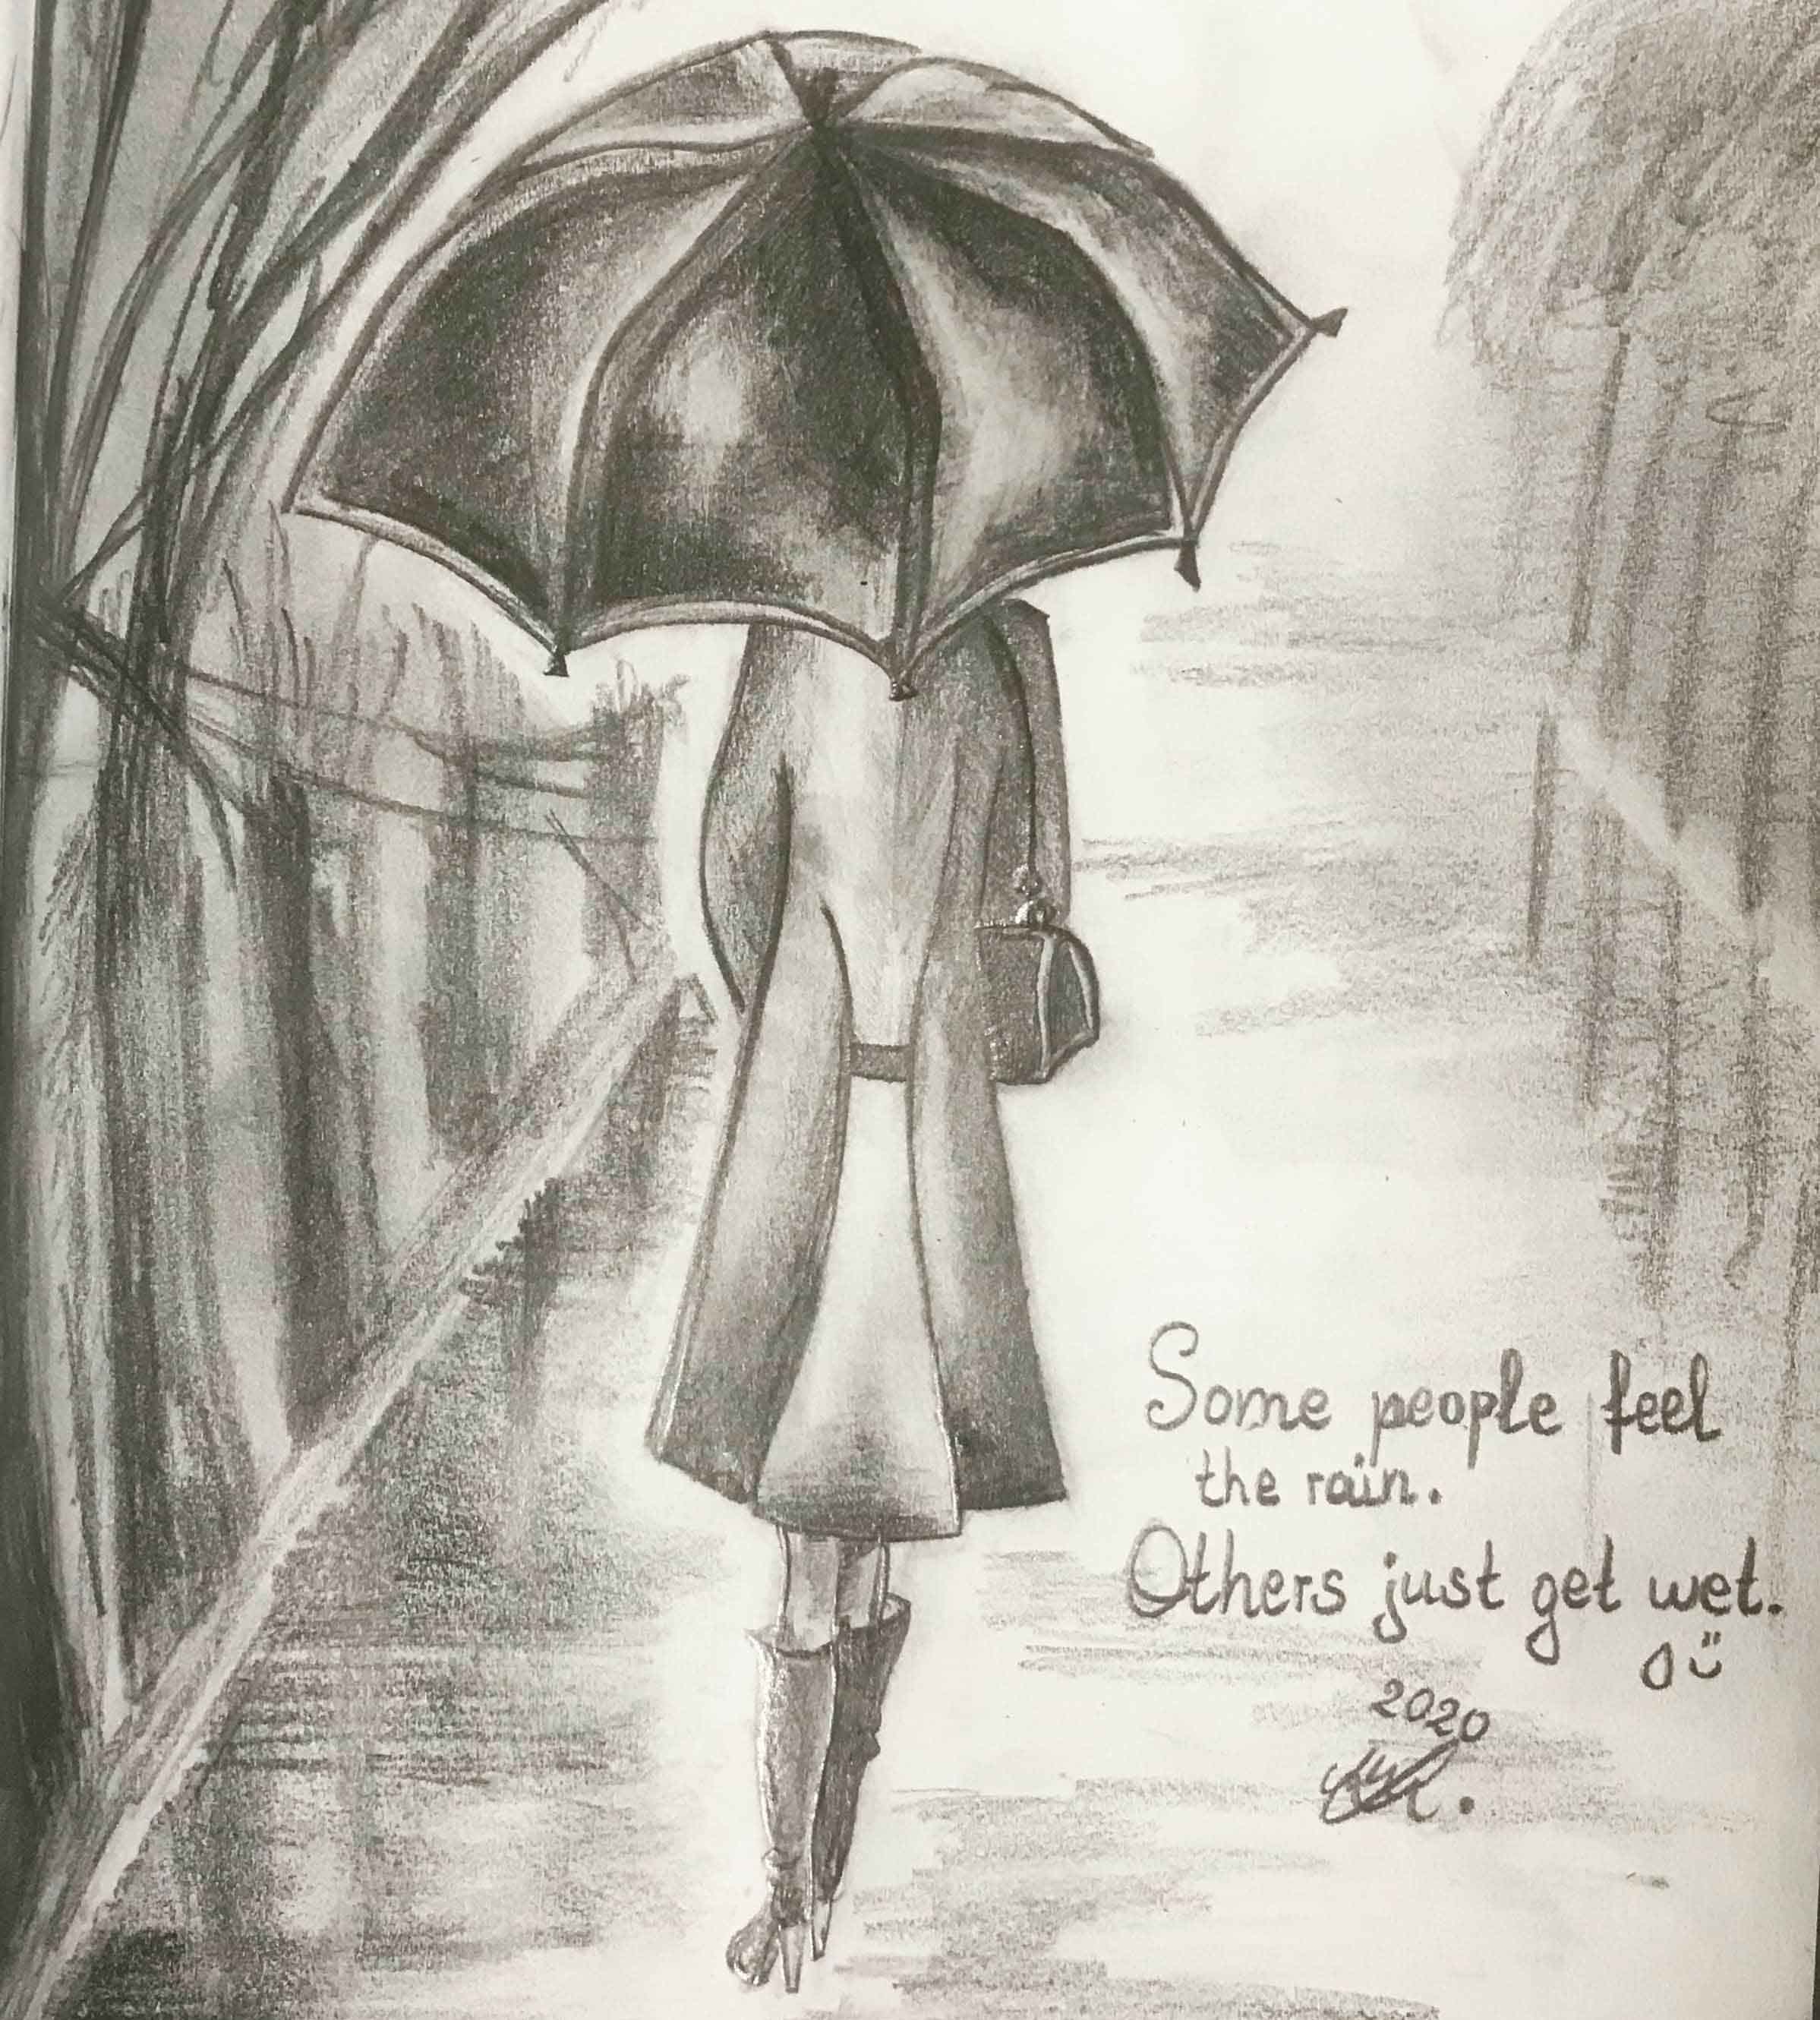 Some people feel
the rain.
Others just get wet.
2020